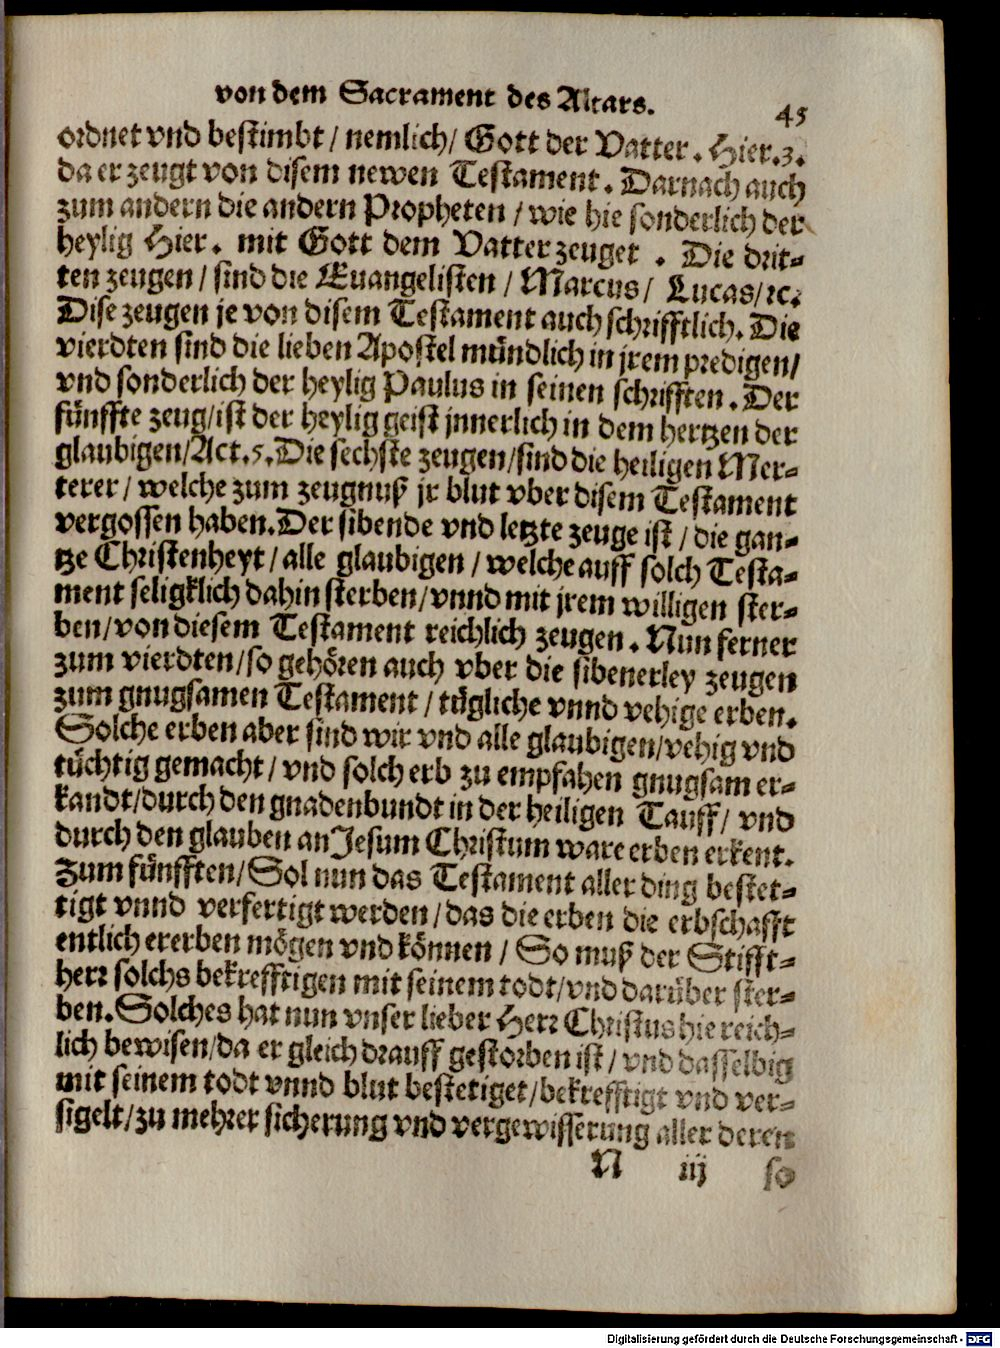 von dem Sacrament des Altars.
45
ordnet vnd bestimbt / nemlich / Gott der Vatter. Hier.3.
da er zeugt von disem newen Testament. Darnach auch
zum andern die andern Propheten / wie hie sonderlich der
heylig Hier. mit Gott dem Vatter zeuget . Die drit⸗
ten zeugen / sind die Euangelisten / Marcus / Lucas / ꝛc.
Dise zeugen je von disem Testament auch schrifftlich. Die
vierdten sind die lieben Apostel mündlich in jrem predigen /
vnd sonderlich der heylig Paulus in seinen schrifften. Der
fünffte zeug / ist der heylig geist jnnerlich in dem hertzen der
glaubigen / Act.5. Die sechste zeugen / sind die heiligen Mer⸗
terer / welche zum zeugnuß jr blut vber disem Testament
vergossen haben. Der sibende vnd letzte zeuge ist / die gan⸗
tze Christenheyt / alle glaubigen / welche auff solch Testa⸗
ment seligklich dahin sterben / vnnd mit jrem willigen ster⸗
ben / von diesem Testament reichlich zeugen . Nun ferner
zum vierdten / so gehören auch vber die sibenerley zeugen
zum gnugsamen Testament / tügliche vnnd vehige erben.
Solche erben aber sind wir vnd alle glaubigen / vehig vnd
tüchtig gemacht / vnd solch erb zu empfahen gnugsam er⸗
kandt / durch den gnadenbundt in der heiligen Tauff / vnd
durch den glauben an Jesum Christum ware erben erkent.
Zum fünfften / Sol nun das Testament aller ding bestet⸗
tigt vnnd verfertigt werden / das die erben die erbschafft
entlich ererben mögen vnd können / So muß der Stifft⸗
herr solchs bekrefftigen mit seinem todt / vnd darüber ster⸗
ben. Solches hat nun vnser lieber Herr Christus hie reich⸗
lich bewisen / da er gleich drauff gestorben ist / vnd dasselbig
mit seinem todt vnnd blut bestetiget / bekrefftigt vnd ver⸗
sigelt / zu mehrer sicherung vnd vergewisserung aller deren
N iij so
Digitalisierung gefördert durch die Deutsche Forschungsgemeinschaft - DFG